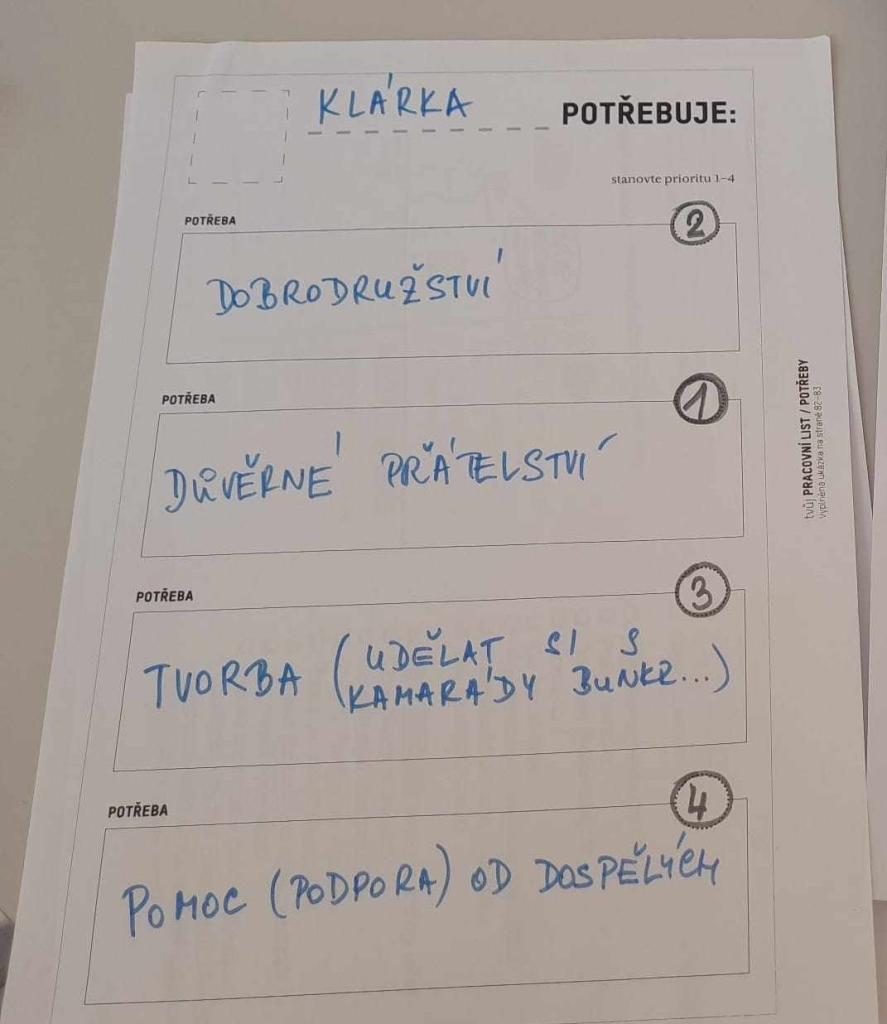 KLÁRKA POTŘEBUJE:
stanovte prioritu 1–4
POTŘEBA
2
DOBRODRUŽSTVÍ
POTŘEBA
1
DŮVĚRNÉ PŘÁTELSTVÍ
POTŘEBA
3
TVORBA (UDĚLAT SI S
KAMARÁDY BUNKR...)
POTŘEBA
4
POMOC (PODPORA) OD DOSPĚLÝCH
tvůj PRACOVNÍ LIST / POTŘEBY
vyplněná ukázka na straně 82–83